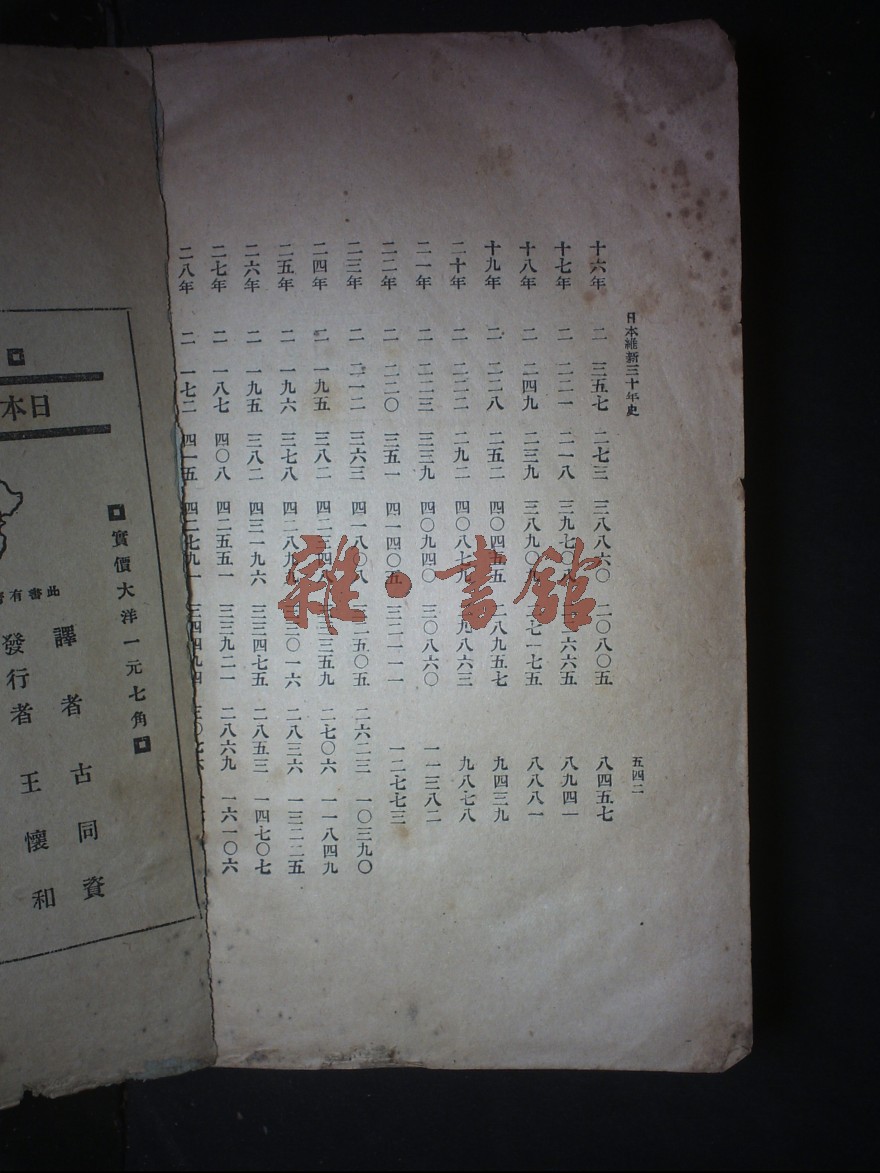 日本維新三十年史
五四二
十六年 二 三五七 二七三 三八八六〇 二〇八〇五 八四五七
十七年 二 二二一 二一八 三九七〇八 六六五 八九四一
十八年 二 二四九 二三九 三八九〇九 七一七五 八八八一
十九年 二 二二八 二五二 四〇四五五 八九五七 九四三九
二十年 二 二二二 二九二 四〇八七九 九八六三 九八七八
二一年 二 二二三 三三九 四〇九四〇 三〇八六〇 一一三八二
二二年 二 二二〇 三五一 四一四〇五 三二一一一 一二七七三
二三年 二 二一二 三六三 四一八〇八 二五〇五 二六二三 一〇三九〇
二四年 二 一九五 三八二 四二三四八 三三五九 二七〇六 一一八四九
二五年 二 一九六 三七八 四二八九 三三〇一六 二八三六 一三二二五
二六年 二 一九五 三八二 四三一九六 三三四七五 二八五三 一四七〇七
二七年 二 一八七 四〇八 四二五五一 三三九二一 二八六九 一六一〇六
二八年 二 一七二 四一五 四二七九一 三四四九四
雜·書館
實價大洋一元七角
日本
此書有
譯者 古同資
發行者 王懷和